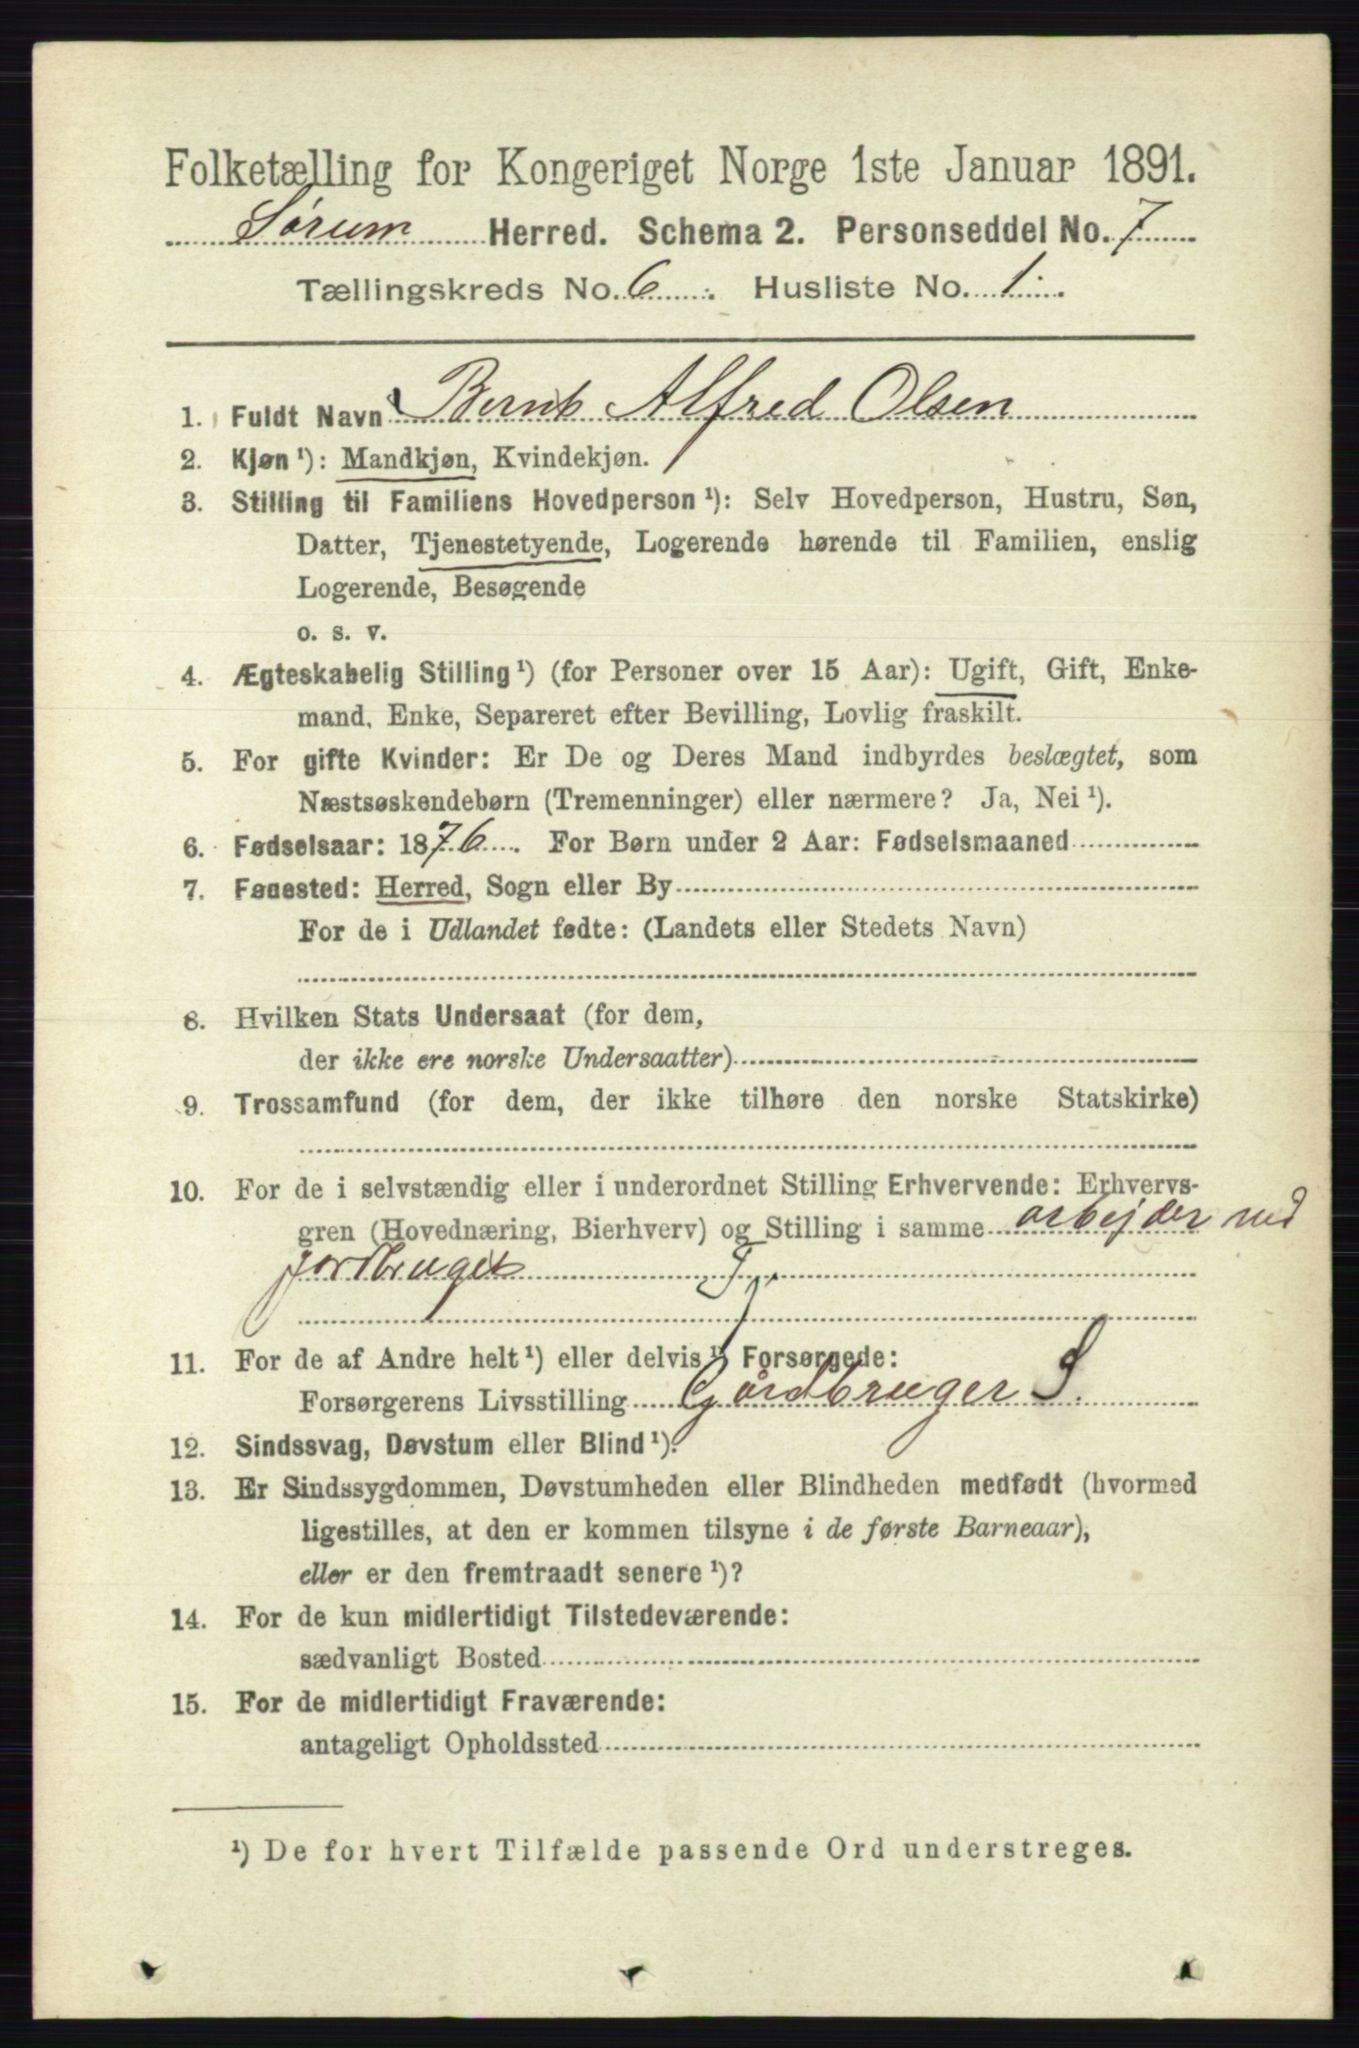 Folketælling for Kongeriget Norge 1ste Januar 1891.
Sørum Herred. Schema 2. Personseddel No. 7
Tællingskreds No. 6. Husliste No. 1.
1. Fuldt Navn Bernt Alfred Olsen
2. Kjøn ¹): Mandkjøn, Kvindekjøn.
3. Stilling til Familiens Hovedperson ¹): Selv Hovedperson, Hustru, Søn,
Datter, Tjenestetyende, Logerende hørende til Familien, enslig
Logerende, Besøgende
o. s. v.
4. Ægteskabelig Stilling ¹) (for Personer over 15 Aar): Ugift, Gift, Enke-
mand, Enke, Separeret efter Bevilling, Lovlig fraskilt.
5. For gifte Kvinder: Er De og Deres Mand indbyrdes beslægtet, som
Næstsøskendebørn (Tremenninger) eller nærmere? Ja, Nei ¹).
6. Fødselsaar: 1876. For Børn under 2 Aar: Fødselsmaaned
7. Føuested: Herred, Sogn eller By
For de i Udlandet fødte: (Landets eller Stedets Navn)
8. Hvilken Stats Undersaat (for dem,
der ikke ere norske Undersaatter)
9. Trossamfund (for dem, der ikke tilhøre den norske Statskirke)
10. For de i selvstændig eller i underordnet Stilling Erhvervende: Erhvervs-
gren (Hovednæring, Bierhverv) og Stilling i samme arbejder ved
jordbruget T.
11. For de af Andre helt ¹) eller delvis ¹) Forsørgede:
Forsørgerens Livsstilling Gårdbruger S.
12. Sindssvag, Døvstum eller Blind ¹).
13. Er Sindssygdommen, Døvstumheden eller Blindheden medfødt (hvormed
ligestilles, at den er kommen tilsyne i de første Barneaar),
eller er den fremtraadt senere ¹)?
14. For de kun midlertidigt Tilstedeværende:
sædvanligt Bosted
15. For de midlertidigt Fraværende:
antageligt Opholdssted
¹) De for hvert Tilfælde passende Ord understreges.